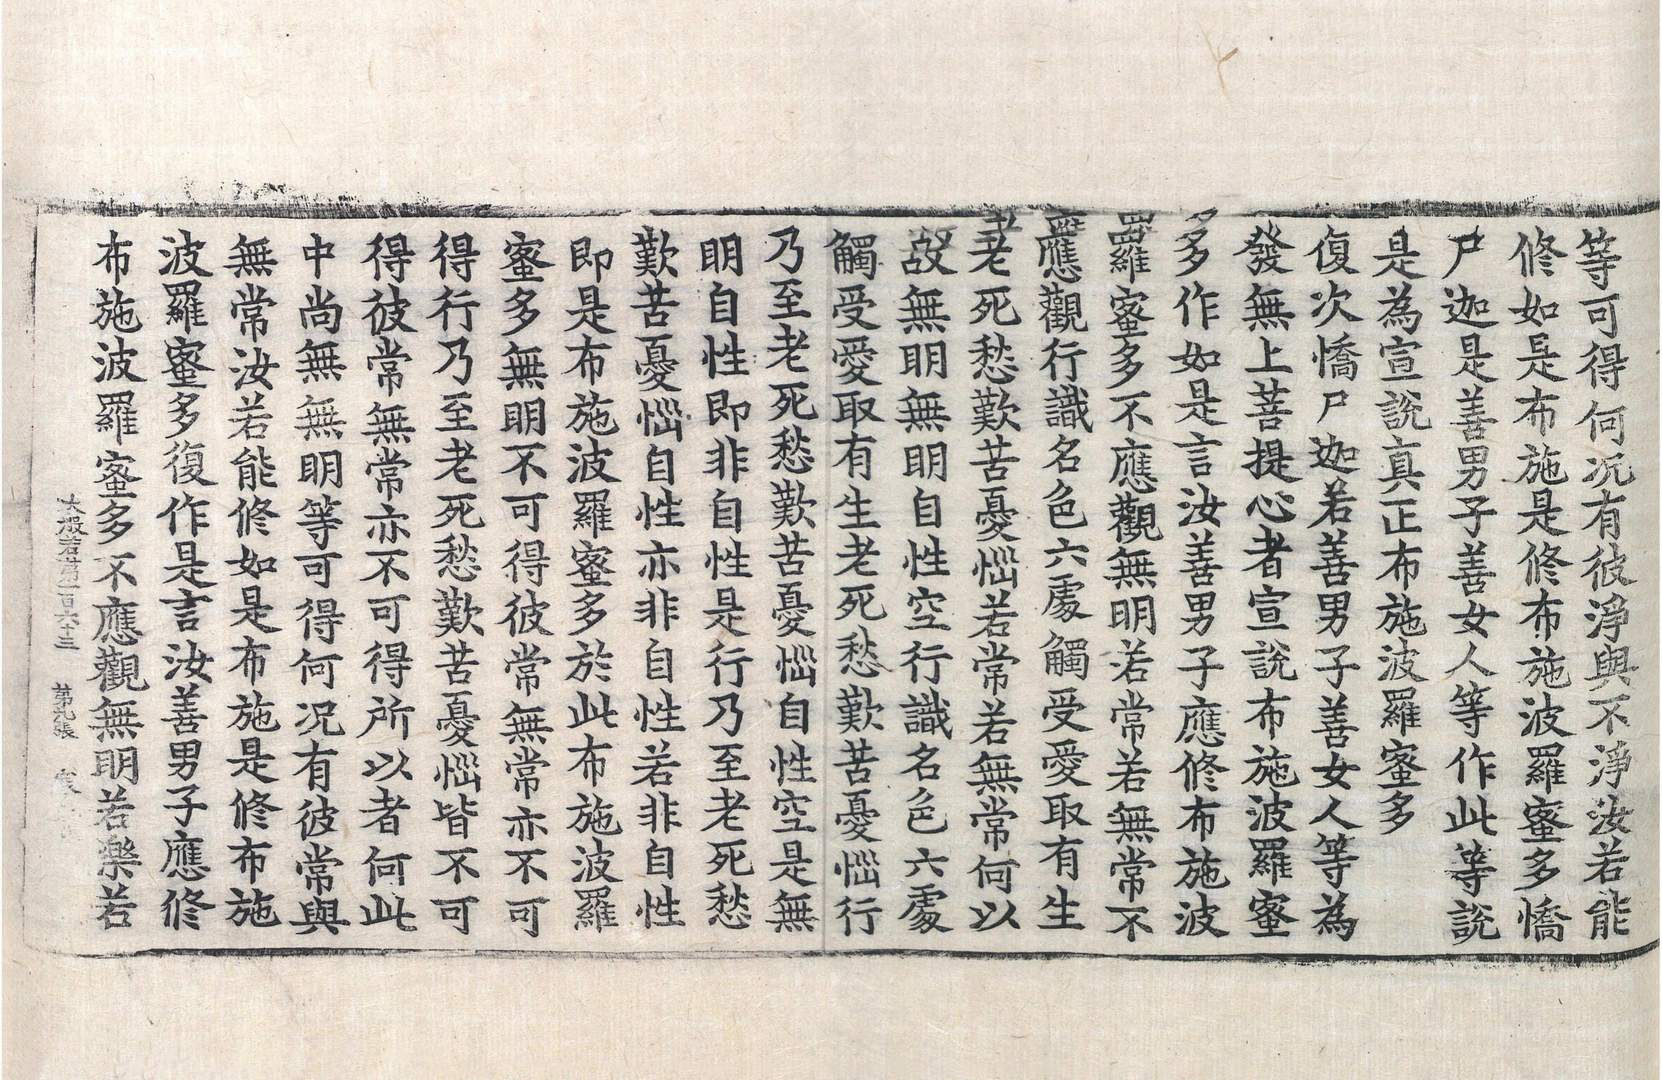 等可得何況有彼淨與不淨汝若能
修如是布施是修布施波羅蜜多憍
尸迦是善男子善女人等作此等說
是為宣說真正布施波羅蜜多
復次憍尸迦若善男子善女人等為
發無上菩提心者宣說布施波羅蜜
多作如是言汝善男子應修布施波
羅蜜多不應觀無明若常若無常不
應觀行識名色六處觸受愛取有生
老死愁歎苦憂惱若常若無常何以
故無明無明自性空行識名色六處
觸受愛取有生老死愁歎苦憂惱行
乃至老死愁歎苦憂惱自性空是無
明自性即非自性是行乃至老死愁
歎苦憂惱自性亦非自性若非自性
即是布施波羅蜜多於此布施波羅
蜜多無明不可得彼常無常亦不可
得行乃至老死愁歎苦憂惱皆不可
得彼常無常亦不可得所以者何此
中尚無無明等可得何況有彼常與
無常汝若能修如是布施是修布施
波羅蜜多復作是言汝善男子應修
布施波羅蜜多不應觀無明若樂若
大般若第一百六十三 第九張